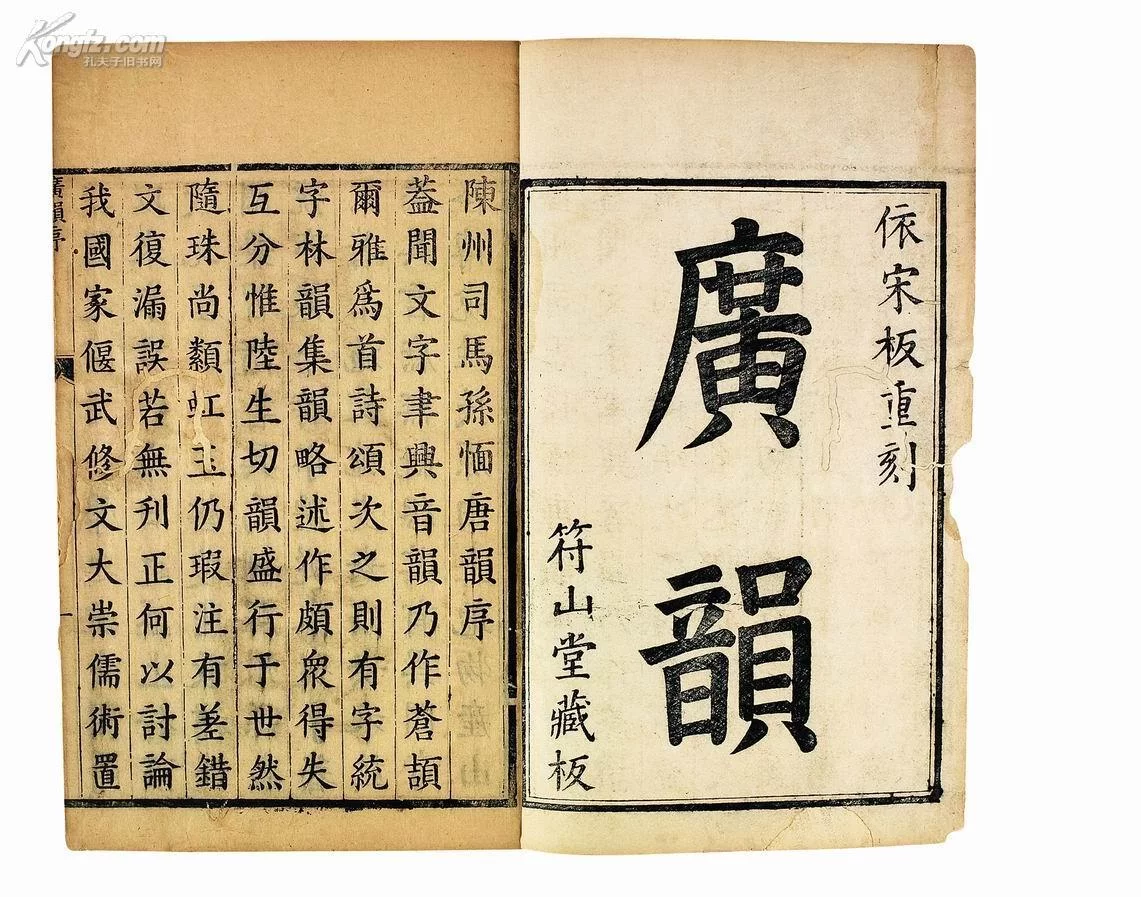 Kongfz.com
孔夫子旧书网
依宋板重刻
廣韻
符山堂藏板
陳州司馬孫愐唐韻序
蓋聞文字聿興音韻乃作蒼頡
爾雅爲首詩頌次之則有字統
字林韻集韻略述作頗衆得失
互分惟陸生切韻盛行于世然
隨珠尚纇虹玉仍瑕注有差錯
文復漏誤若無刋正何以討論
我國家偃武修文大崇儒術置
廣韻序
一